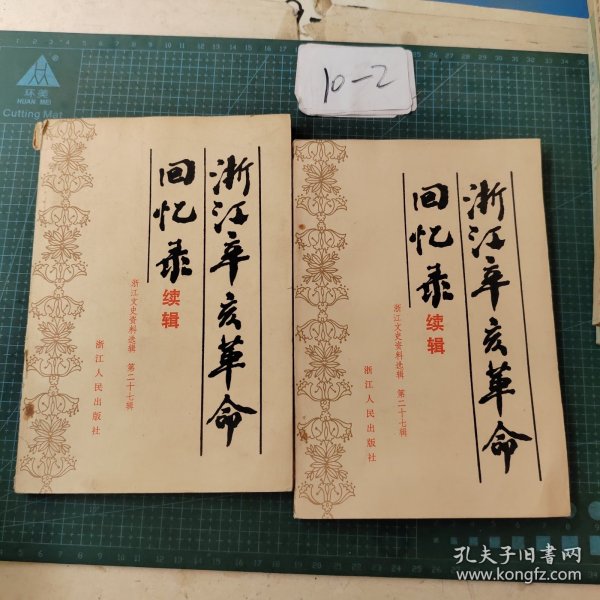 环美
HUAN MEI
Cutting Mat
10-2
浙江辛亥革命
回忆录
续辑
浙江文史资料选辑 第二十七辑
浙江人民出版社
浙江辛亥革命
回忆录
续辑
浙江文史资料选辑 第二十七辑
浙江人民出版社
孔夫子旧书网
www.kongfz.com